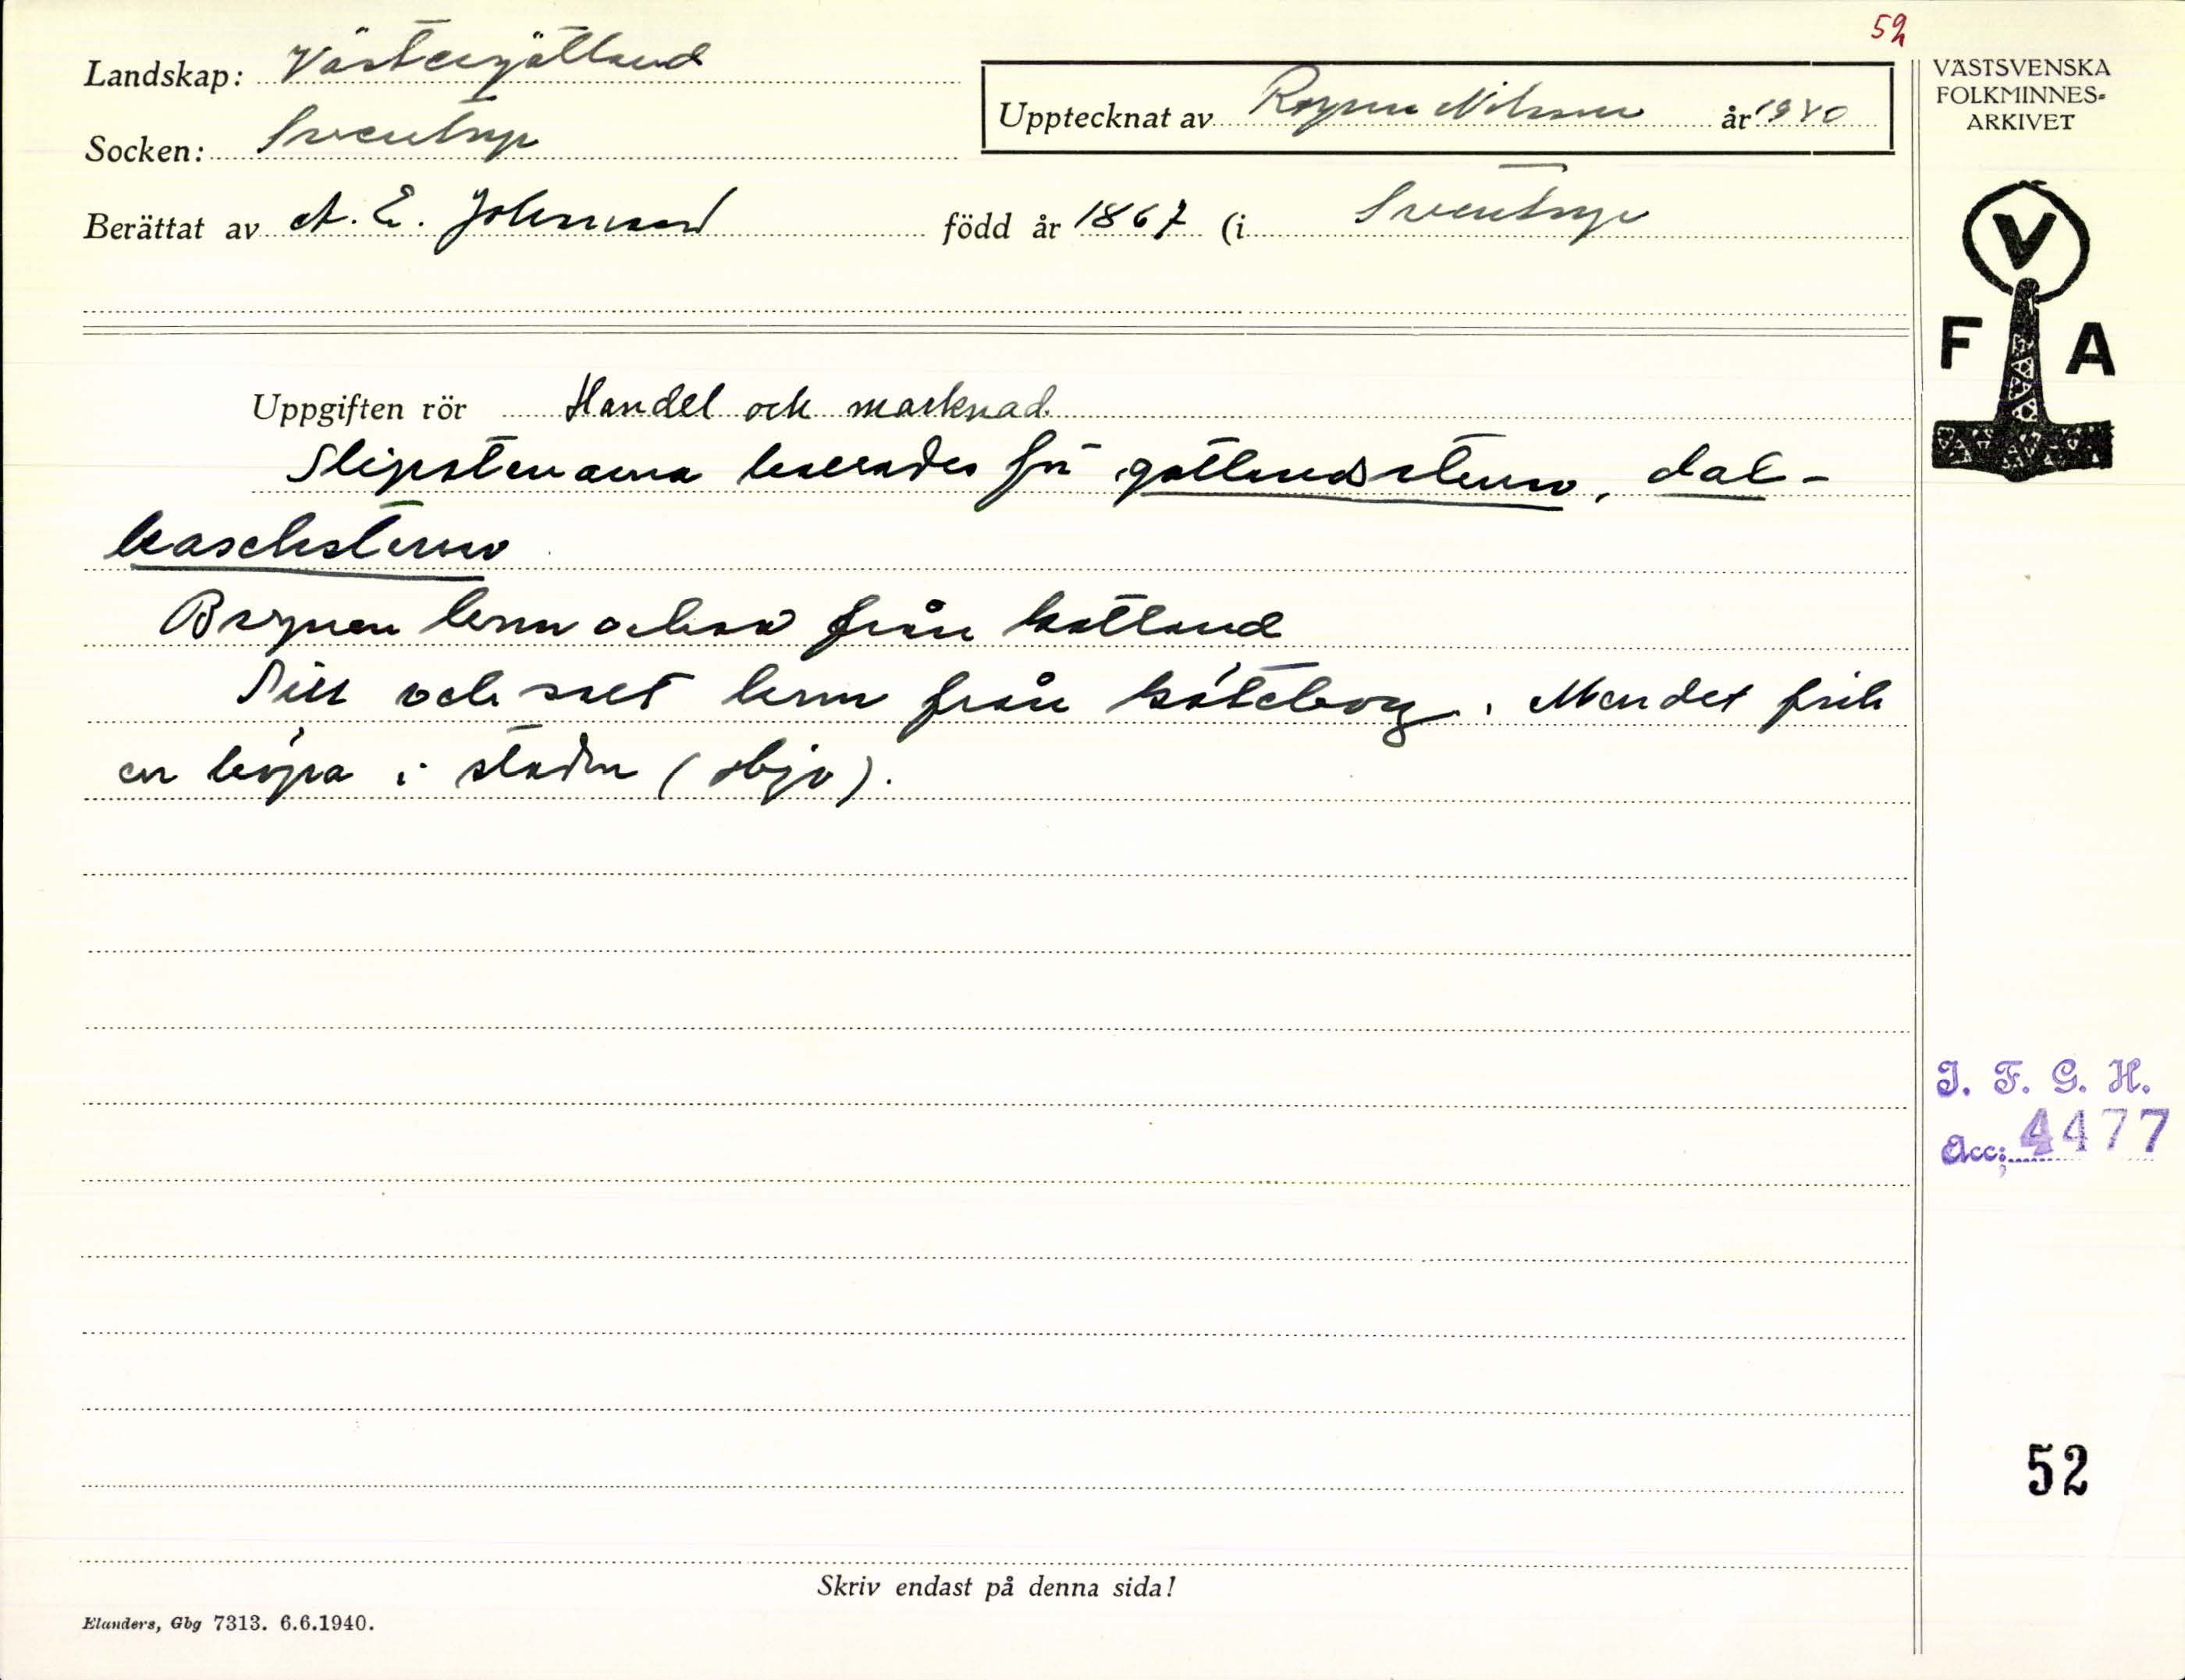 52
Landskap: Västergötland
Upptecknat av Ragnar Nilsson år 1940
VÄSTSVENSKA
FOLKMINNES-
ARKIVET
Socken: Sventorp
Berättat av A. E. Johansson född år 1867 (i Sventorp
V
F A
Uppgiften rör Handel och marknad.
Slipstenarna kallades för gotlandsstenar, dal-
Brynen kom också från Gotland
Sill och salt kom från Göteborg. Men det fick
en köpa i staden
I. F. G. H.
Acc: 4477
52
Skriv endast på denna sida!
Elanders, Gbg 7313. 6.6.1940.